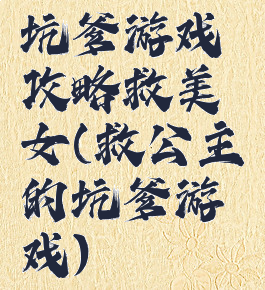 坑爹游戏
攻略救美
女(救公主
的坑爹游
戏)